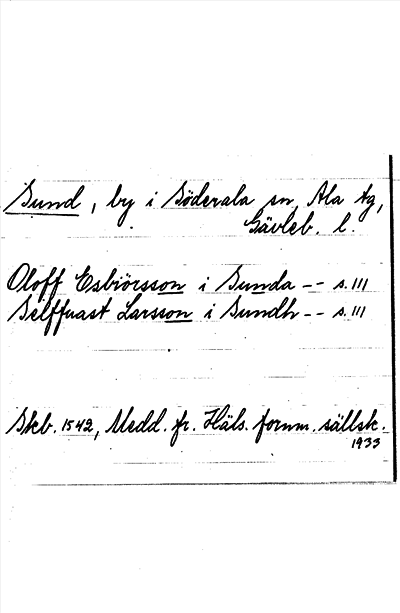 Sund, by i Söderala sn, Ala tg,
Gävleb. l.
Oloff Esbiörsson i Sunda -- s. 111
Selffuast Larsson i Sundh -- s. 111
Skb. 1542, Medd. fr. Häls. fornm. sällsk.
1933